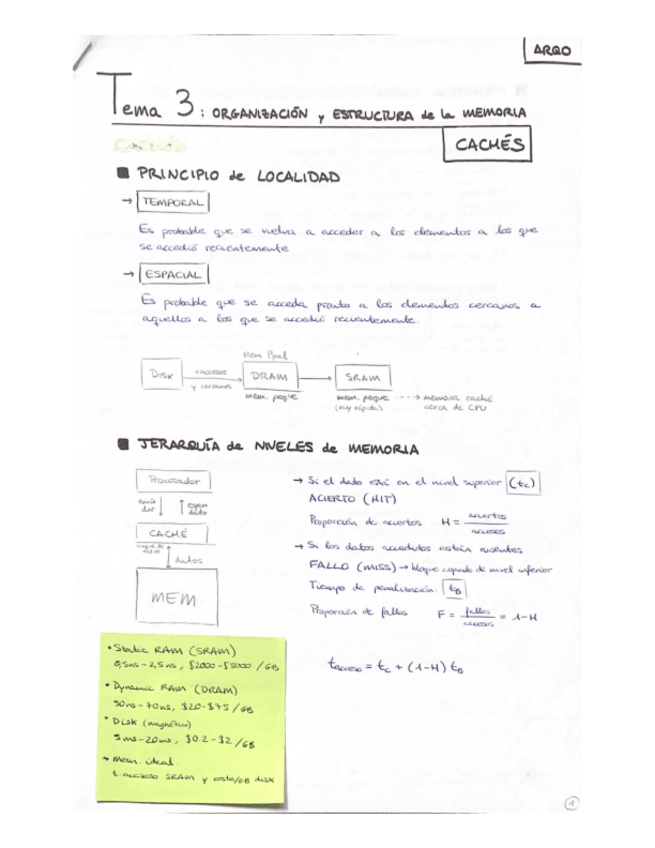 ARQO
Tema 3: ORGANIZACIÓN y ESTRUCTURA de la MEMORIA
CACHÉS
PRINCIPIO de LOCALIDAD
→ TEMPORAL
Es probable que se vuelva a acceder a los elementos a los que
se accedió recientemente
→ ESPACIAL
Es probable que se acceda pronto a los elementos cercanos a
aquellos a los que se accedió recientemente.
Mem Ppal
DISK
recientes
y cercanos
DRAM
SRAM
mem. peque
mem. peque
(muy rápida)
→ memoria caché
cerca de CPU
JERARQUÍA de NIVELES de MEMORIA
Procesador
CACHÉ
datos
MEM
→ Si el dato está en el nivel superior (tc)
ACIERTO (HIT)
Proporción de aciertos H = aciertos / accesos
→ Si los datos accedidos están ausentes
FALLO (MISS) → bloque copiado de nivel inferior
Tiempo de penalización: tB
Proporción de fallos F = fallos / accesos = 1-H
tacceso = tc + (1-H) tB
• Static RAM (SRAM)
0,5ns-2,5ns, $2000-$5000/GB
• Dynamic RAM (DRAM)
50ns-70ns, $20-$75/GB
• Disk (magnético)
5ms-20ms, $0.2-$2/GB
→ Mem. ideal
t. acceso SRAM y coste/GB disk
1